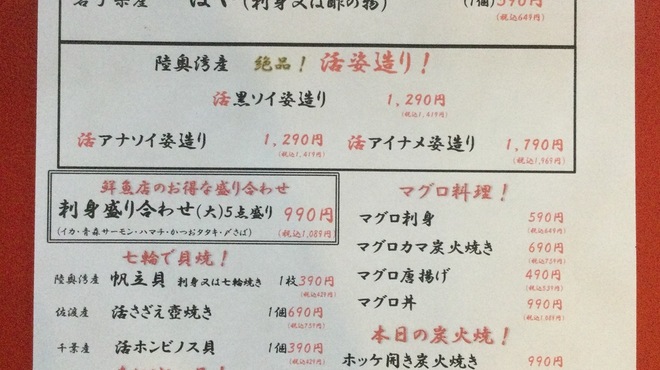 岩手県産 ほや (刺身又は酢の物) (1個) 590円
(税込649円)
陸奥湾産 絶品! 活姿造り!
活黒ソイ姿造り 1,290円
(税込1,419円)
活アナソイ姿造り 1,290円 活アイナメ姿造り 1,790円
(税込1,419円) (税込1,969円)
鮮魚店のお得な盛り合わせ
刺身盛り合わせ(大)5点盛り 990円
(イカ・青森サーモン・ハマチ・かつおタタキ・〆さば) (税込1,089円)
七輪で貝焼!
陸奥湾産 帆立貝 刺身又は七輪焼き 1枚390円
(税込429円)
佐渡産 活さざえ壺焼き 1個690円
(税込759円)
千葉産 活ホンビノス貝 1個390円
(税込429円)
マグロ料理!
マグロ刺身 590円
(税込649円)
マグロカマ炭火焼き 690円
(税込759円)
マグロ唐揚げ 490円
(税込539円)
マグロ丼 990円
(税込1,089円)
本日の炭火焼!
ホッケ開き炭火焼き 990円